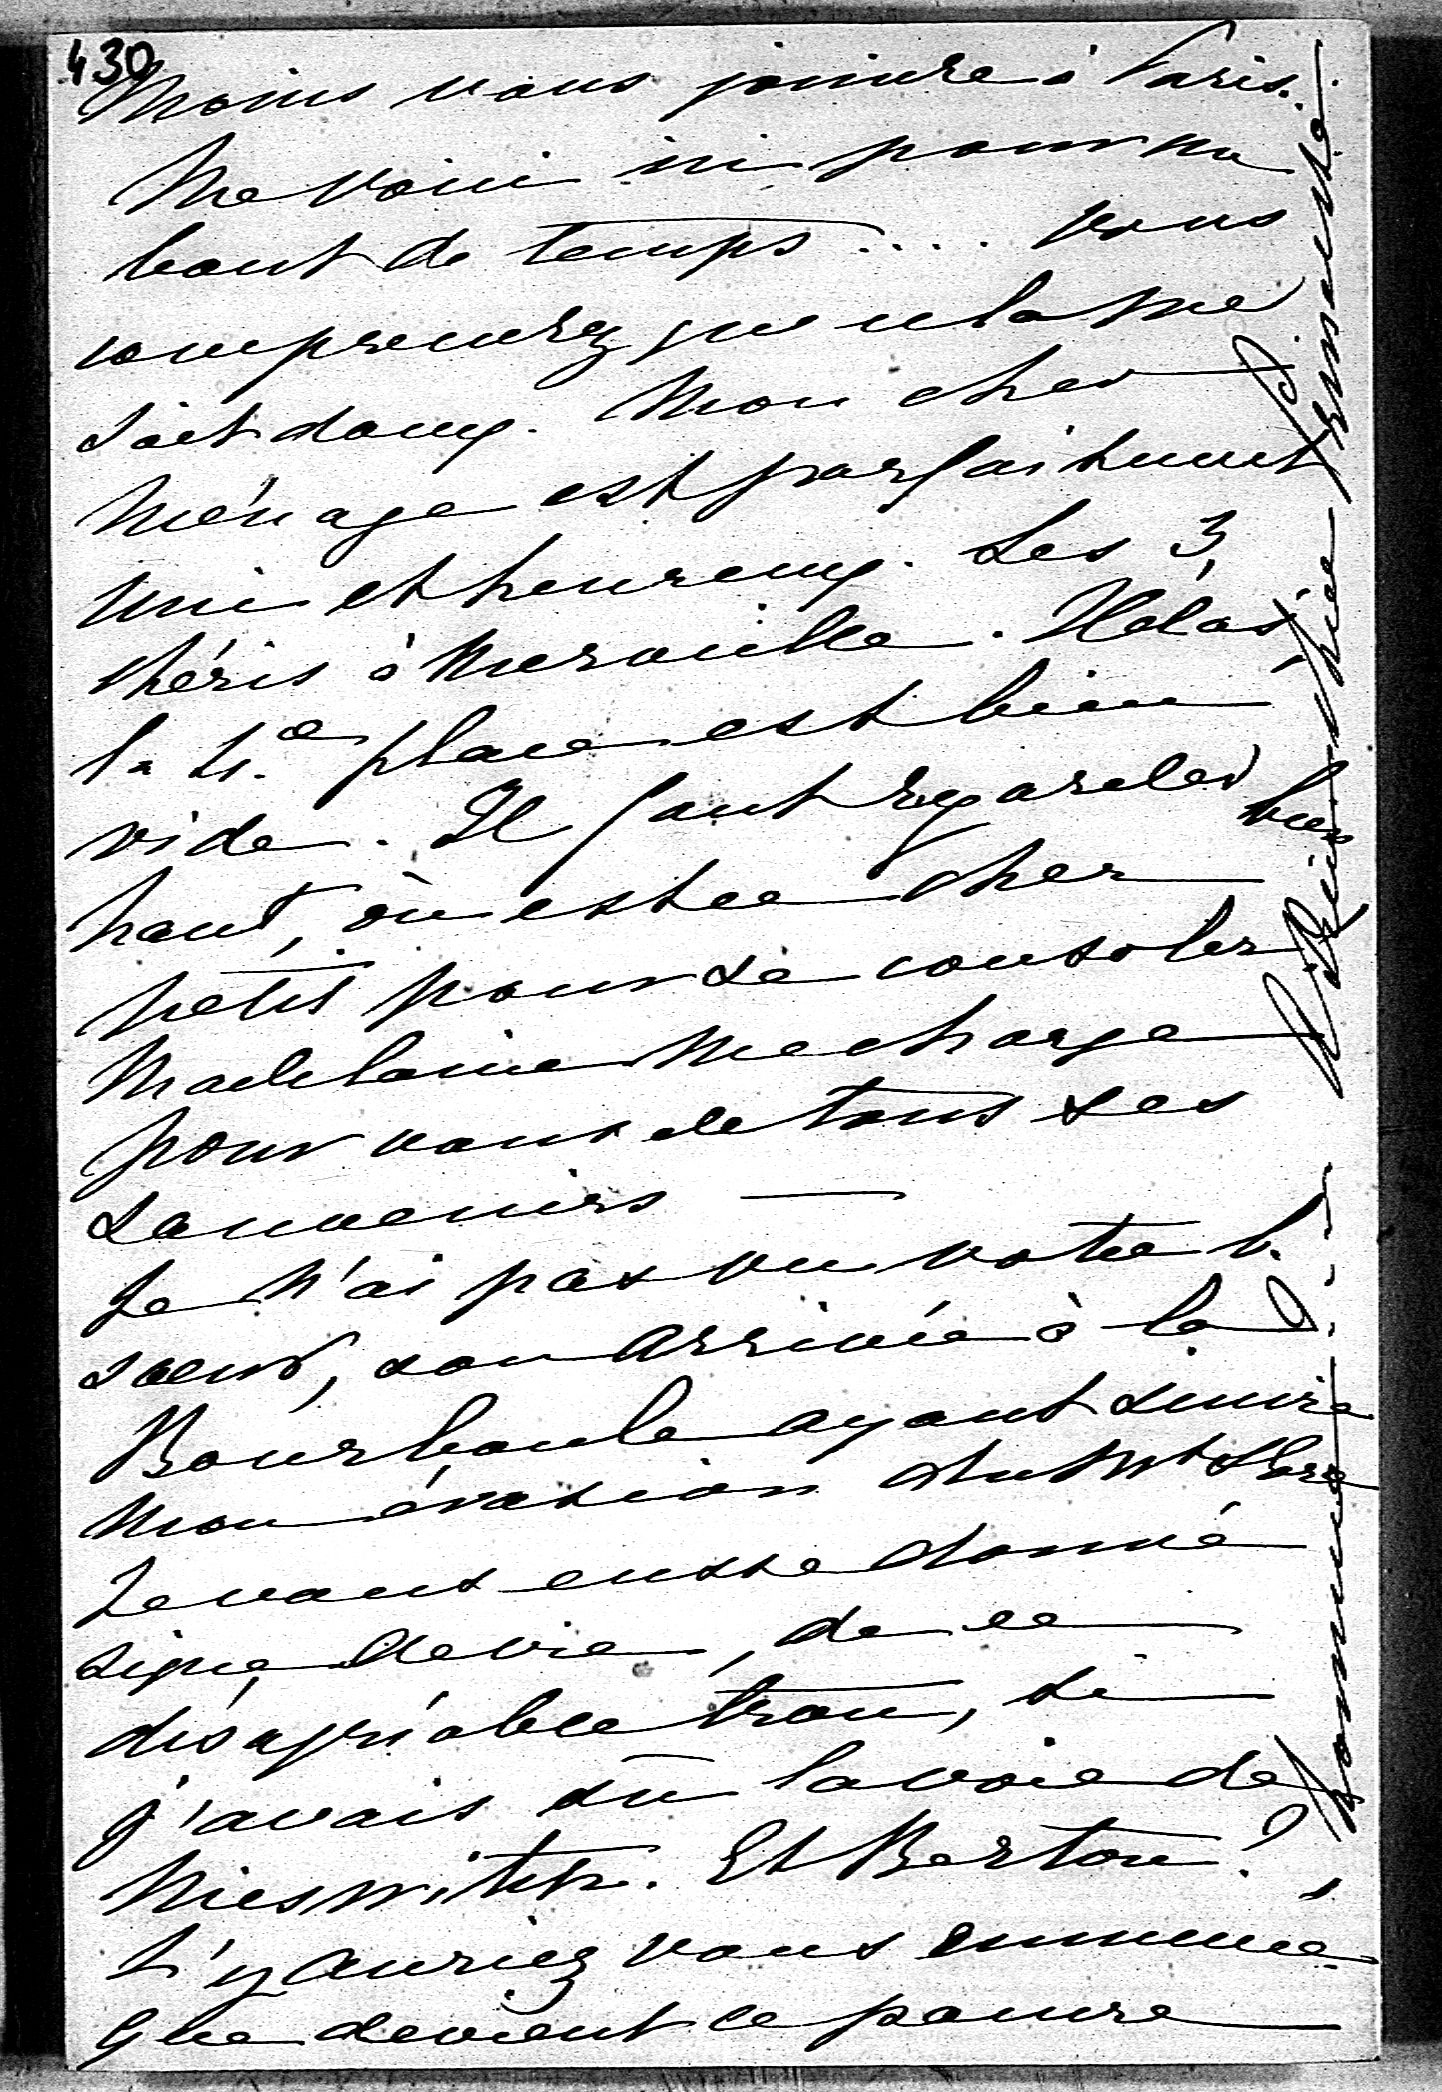 430
moins vous joindre à Paris.
Me voici ici pour un
bout de temps.... vous
comprenez que cela me
soit doux. Mon cher
ménage est parfaitement
uni et heureux. Les 3
chéris à merveille. Hélas,
la 4.e place est bien
vide. Il faut regarder bien
haut, où est ce cher
petit pour se consoler
Madelaine me charge
pour vous de tous ses
souvenirs —
Je n'ai pas vu votre b.
soeur, son arrivée à la
Bourboule ayant suivi
mon évasion du Mt Dore
Je vous eusse donné
signe de vie, de ce
désagréable trou, si
j'avais su la voie de
. Et Berton?
L'y auriez vous emmené
Que devient ce pauvre
homme
Adieu chère